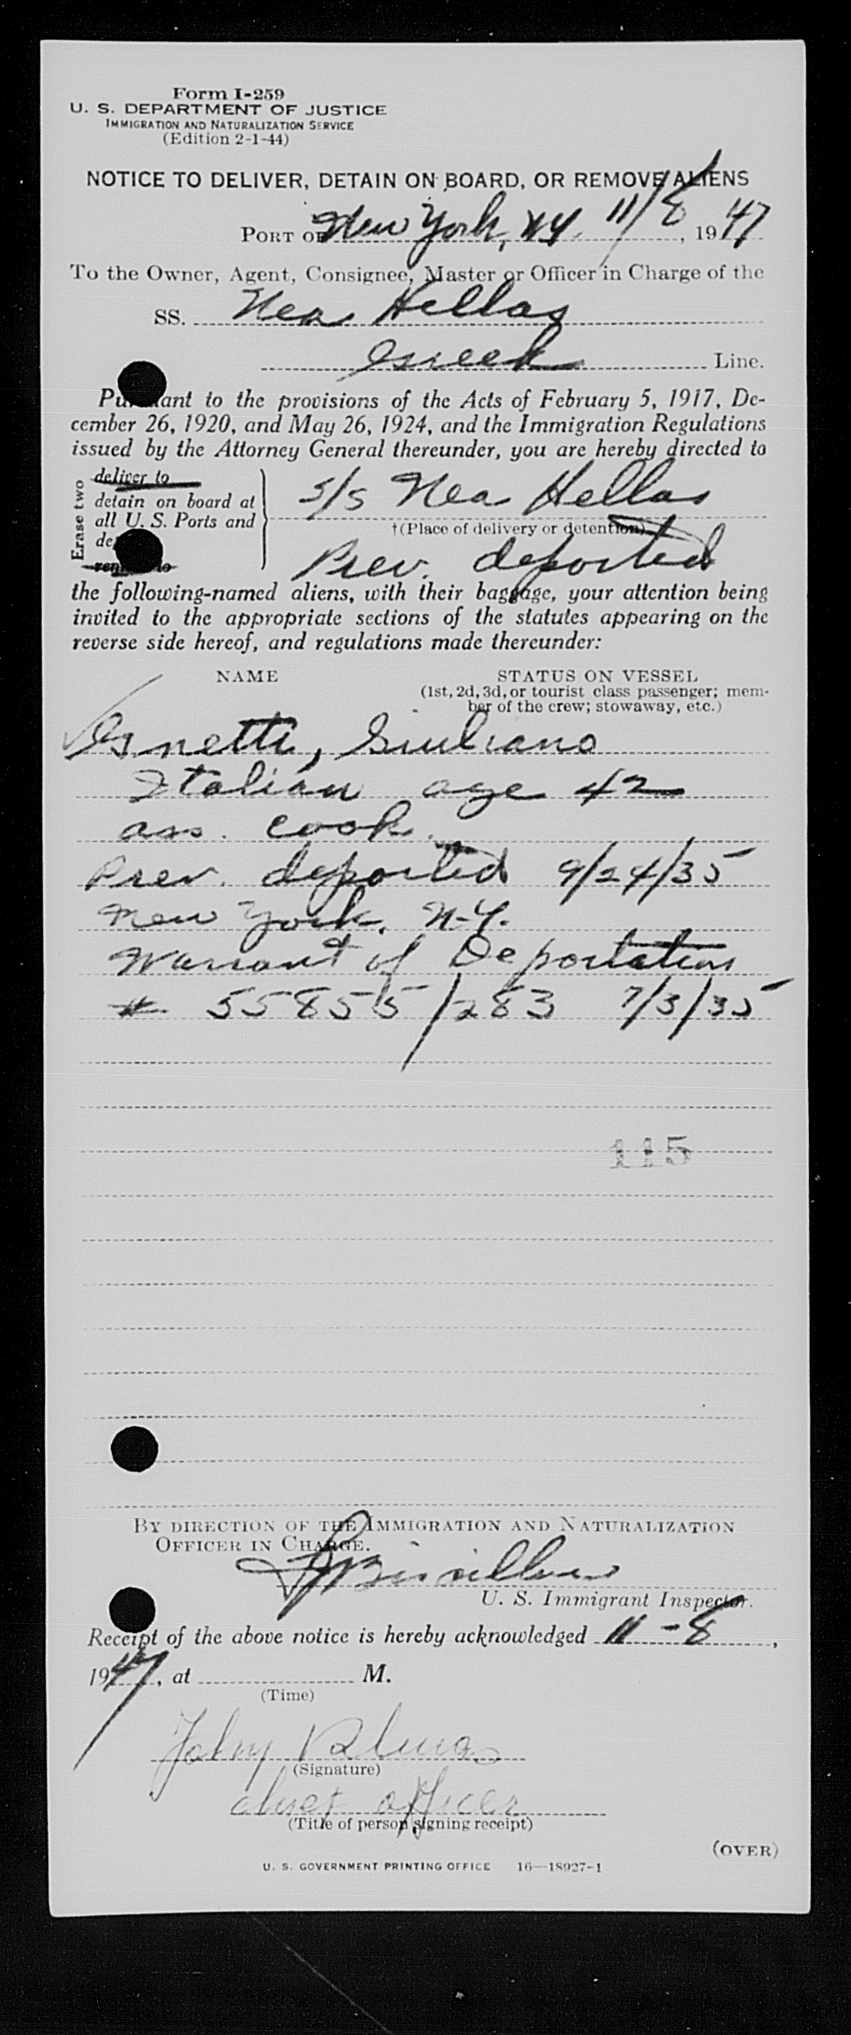 Form I-259
U. S. DEPARTMENT OF JUSTICE
IMMIGRATION AND NATURALIZATION SERVICE
(Edition 2-1-44)
NOTICE TO DELIVER, DETAIN ON BOARD, OR REMOVE ALIENS
PORT OF New York, N.Y. 11/8, 1947
To the Owner, Agent, Consignee, Master or Officer in Charge of the
SS. Nea Hellas
Greek Line.
Pursuant to the provisions of the Acts of February 5, 1917, De-
cember 26, 1920, and May 26, 1924, and the Immigration Regulations
issued by the Attorney General thereunder, you are hereby directed to
Erase two
deliver to
detain on board at
all U. S. Ports and
remove to
S/S Nea Hellas
†(Place of delivery or detention)
Prev. deported
the following-named aliens, with their baggage, your attention being
invited to the appropriate sections of the statutes appearing on the
reverse side hereof, and regulations made thereunder:
NAME
STATUS ON VESSEL
(1st, 2d, 3d, or tourist class passenger; mem-
ber of the crew; stowaway, etc.)
Giuliano
Italian age 42
ass. cook.
Prev. deported 9/24/35
New York, N.Y.
Warrant of Deportation
# 55855/283 7/3/35
115
BY DIRECTION OF THE IMMIGRATION AND NATURALIZATION
OFFICER IN CHARGE.
U. S. Immigrant Inspector.
Receipt of the above notice is hereby acknowledged 11-8,
1947, at M.
(Time)
(Signature)
chief officer
(Title of person signing receipt)
(OVER)
U. S. GOVERNMENT PRINTING OFFICE 16—18927-1